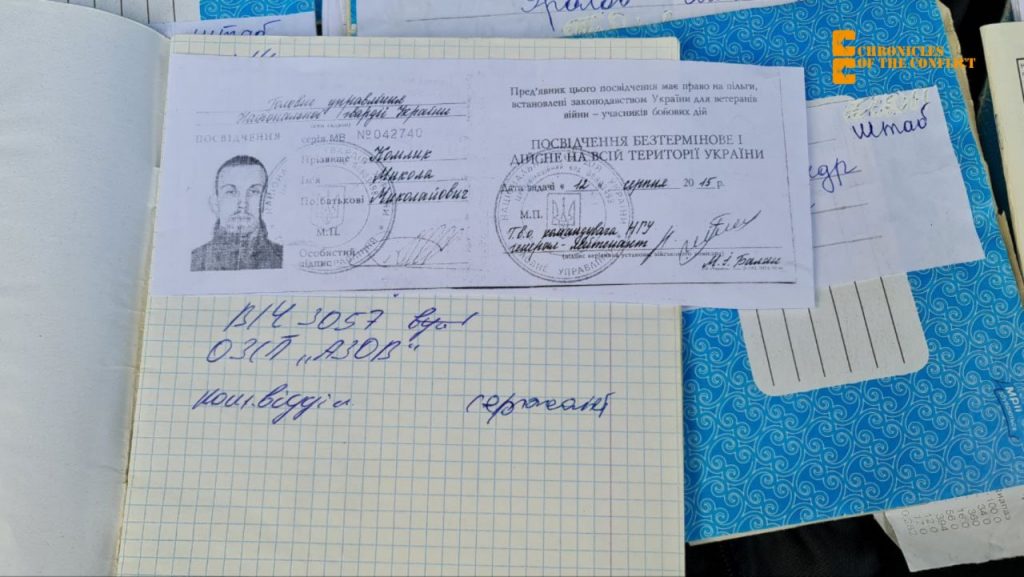 штаб
CHRONICLES
OF THE CONFLICT
Головне управління
Національної гвардії України
ПОСВІДЧЕННЯ
серія МВ № 042740
Прізвище Комлик
Ім'я Микола
По батькові Миколайович
М.П.
Особистий
підпис
Пред'явник цього посвідчення має право на пільги,
встановлені законодавством України для ветеранів
війни – учасників бойових дій
ПОСВІДЧЕННЯ БЕЗТЕРМІНОВЕ І
ДІЙСНЕ НА ВСІЙ ТЕРИТОРІЇ УКРАЇНИ
Дата видачі « 12 » серпня 2015 р.
М.П.
Т.в.о. командувача НГУ
генерал-лейтенант
М. І. Балан
штаб
В/Ч 3057
ОЗСП „АЗОВ“
ком.відділ. сержант